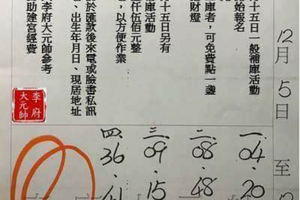 十五日一般補庫活動
始報名
庫者，可免費點一盞
財燈
十五日另有
庫活動
仟伍佰元整
，以方便作業
於匯款後來電或臉書私訊
、出生年月日、現居地址
李府大元帥參考
助建宮經費
李府
大元帥
12月5日至
一 04．20
二 08．48
三 09．15
四 36．